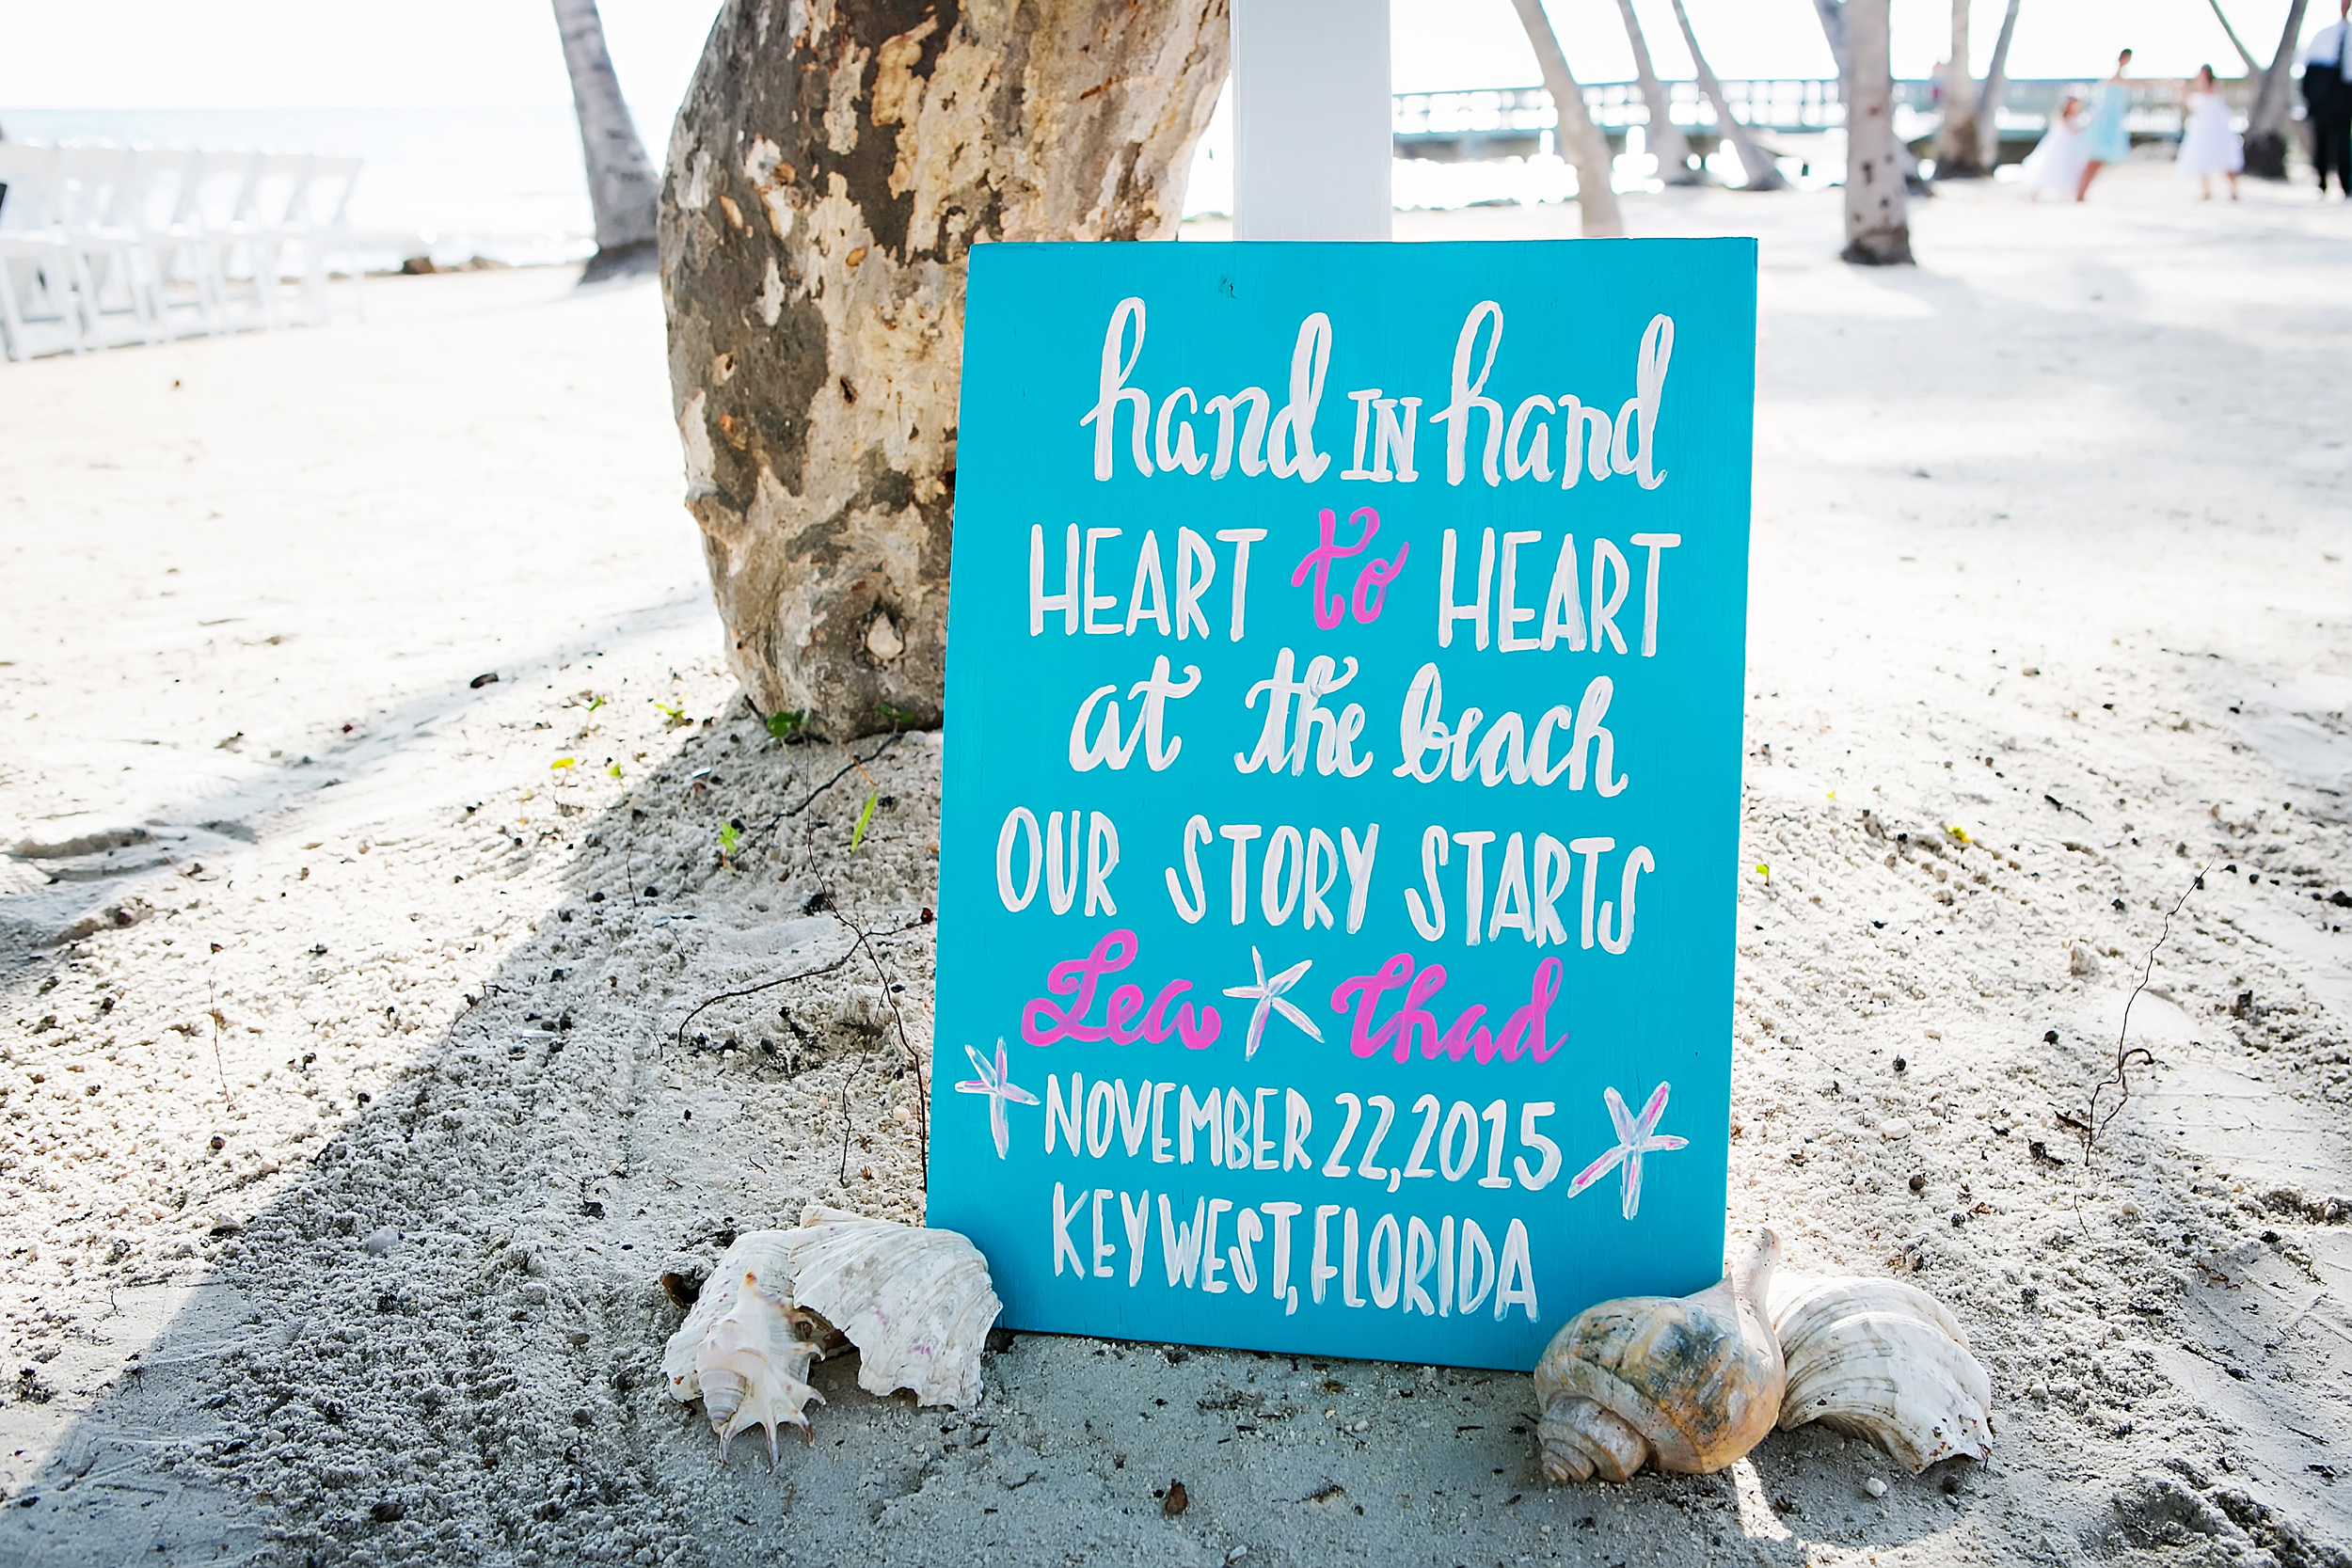 hand IN hand
HEART to HEART
at the beach
OUR STORY STARTS
Lea Thad
NOVEMBER 22, 2015
KEY WEST, FLORIDA